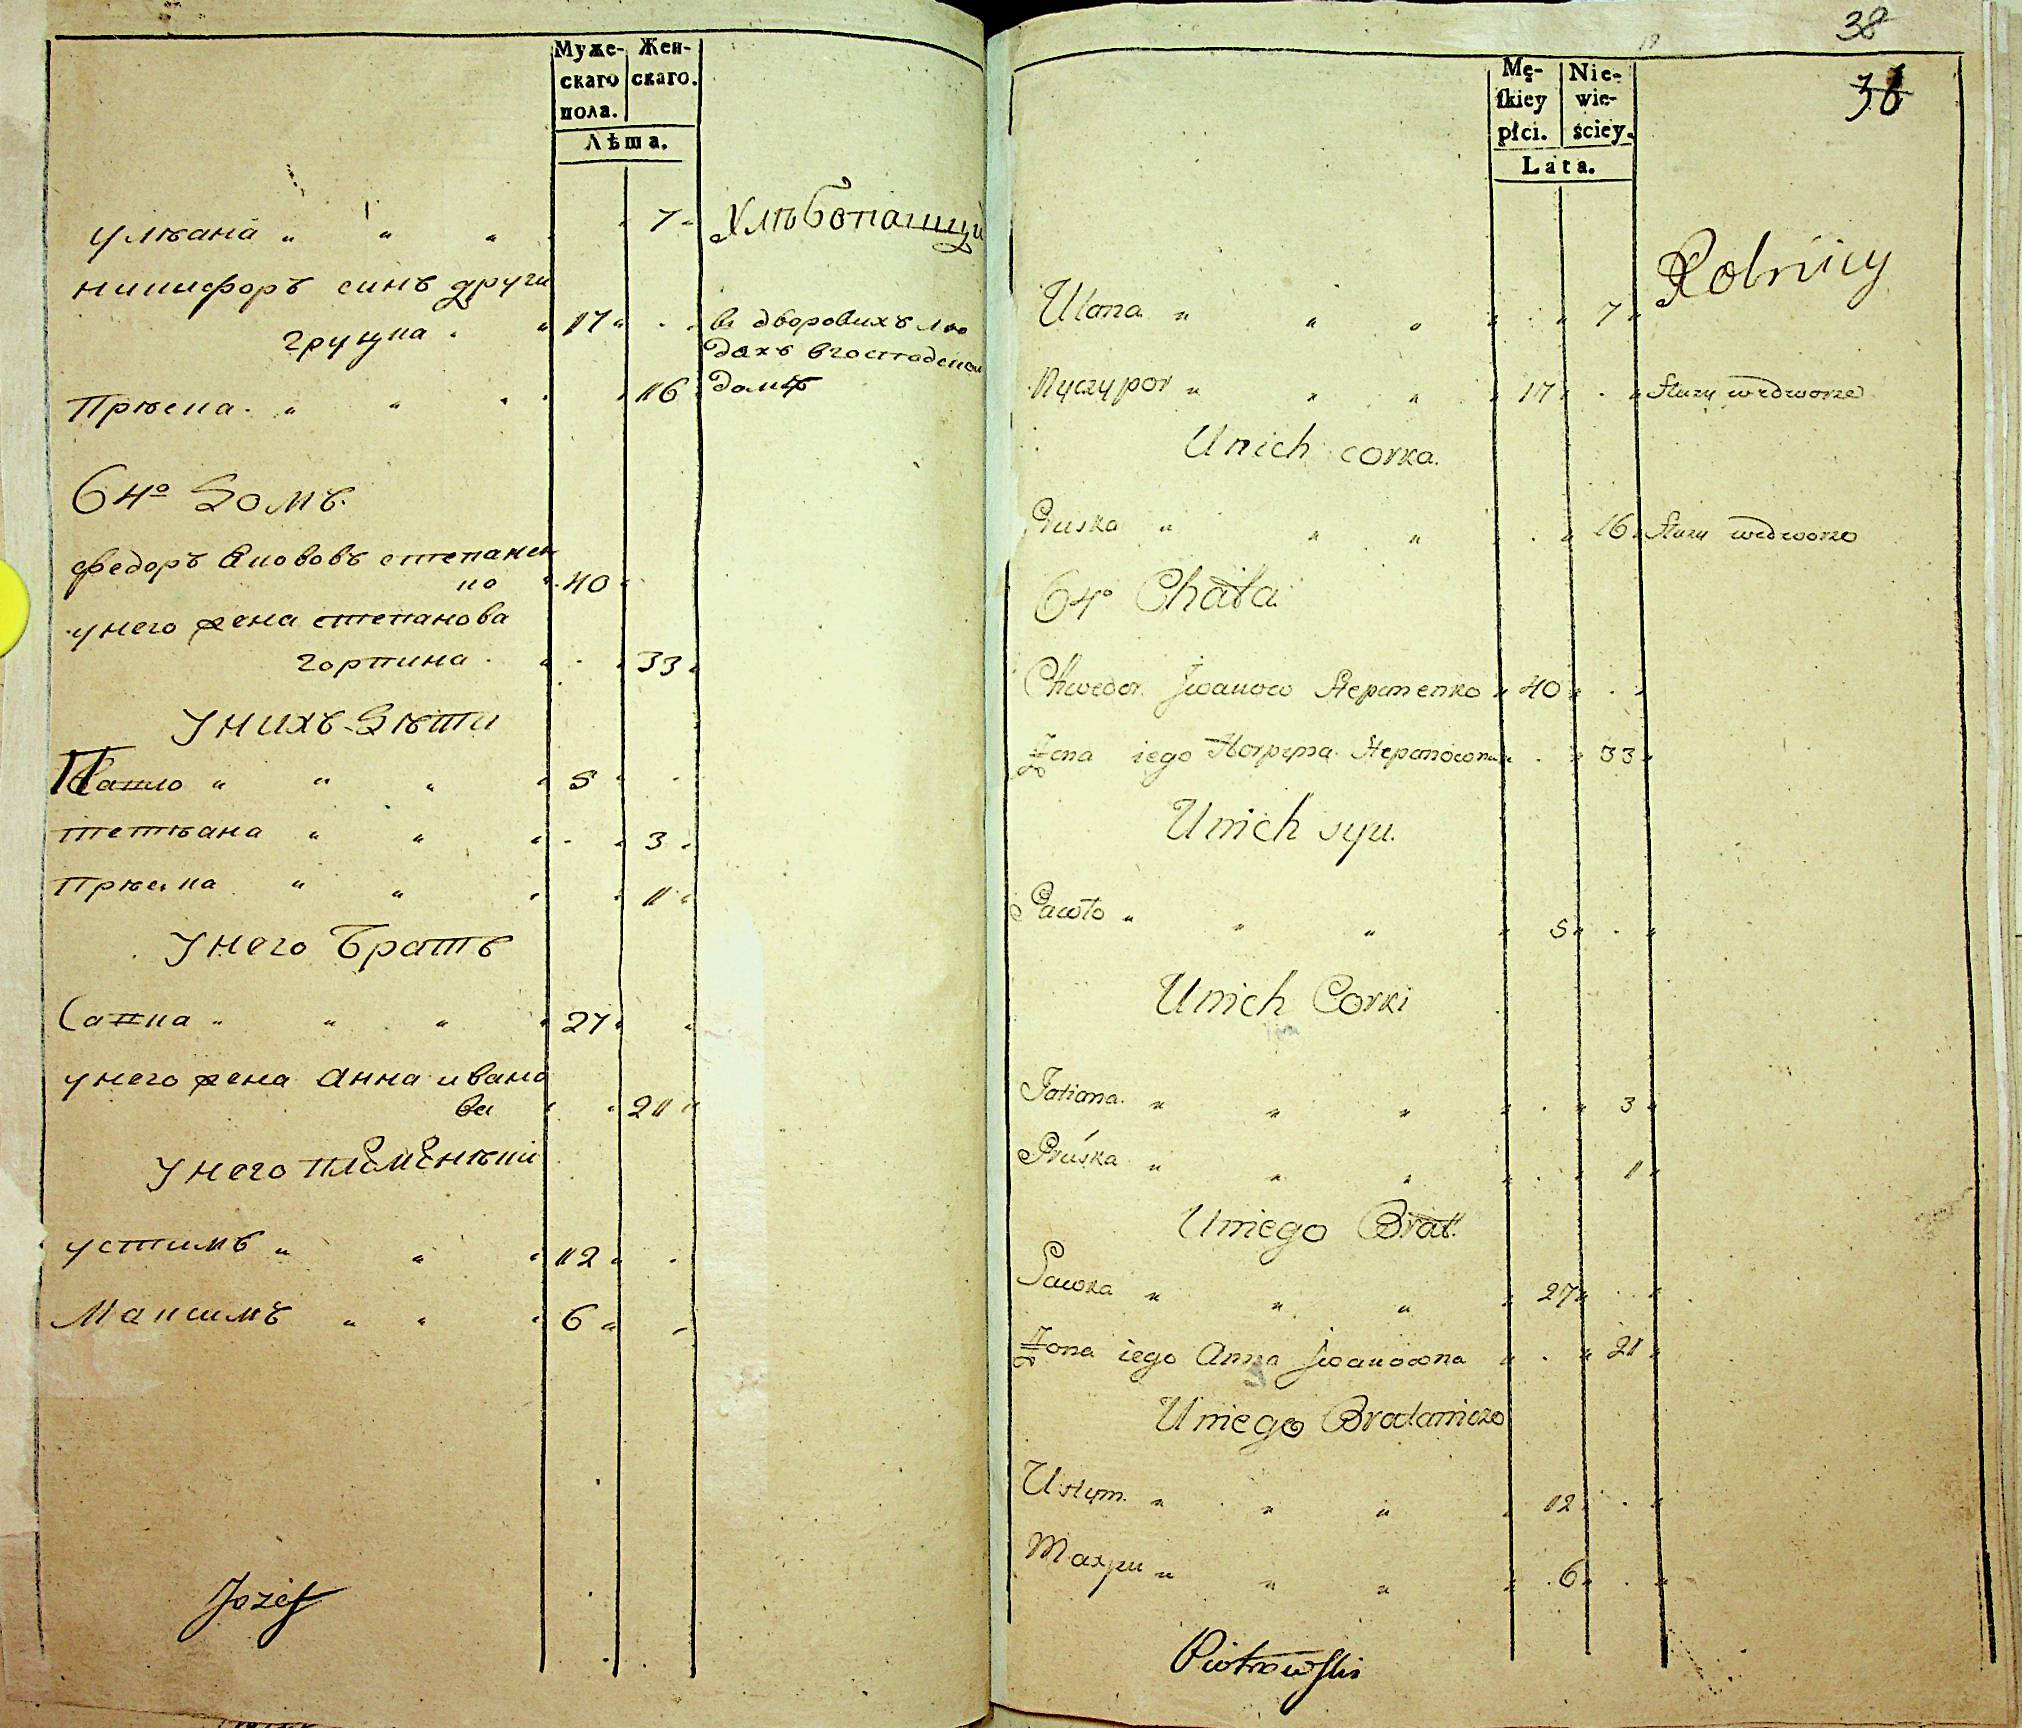 Муже-
скаго
пола.
Жен-
скаго.
Лѣта.
улѣана " " " 7 Хлѣбопашци
никифоръ синъ други
грицка " 17 " в дворовихъ лю
дахъ вгосподском
домѣ
Прѣска " " 16
64º Домъ.
федоръ Якововъ степанен
ко 40
унего жена степанова
горпина 33
Унихъ Дѣти
Павло " " " 5
тетѣана " " 3
прѣска " " 1
Унего Братъ
Сапка " " " 27
унего жена Анна ивано
ва 21
Унего племѣнѣки
устимъ " " 12
Максимъ " " 6
Jozef
38
36
Mę-
skiey
płci.
Nie-
wie-
ściey.
Lata.
Rolnicy
Ulana " " " 7
Nyczypor " " " 17 Słuzy wedworze
Unich corka.
Pruska " " " 16 Słuzy wedworze
64º Chata
Chwedor Jwanow Stepanenko 40
Zona iego Horpyna Stepanowna 33
Unich syn.
Pawło " " " 5
Unich Corki
Tatiana " " " 3
Pruska " " " 1
Uniego Brat.
Sawka " " " 27
Zona iego Anna Jwanowna 21
Uniego Bratanicze
Ustym " " " 12
Maxym " " " 6
Piotrowski